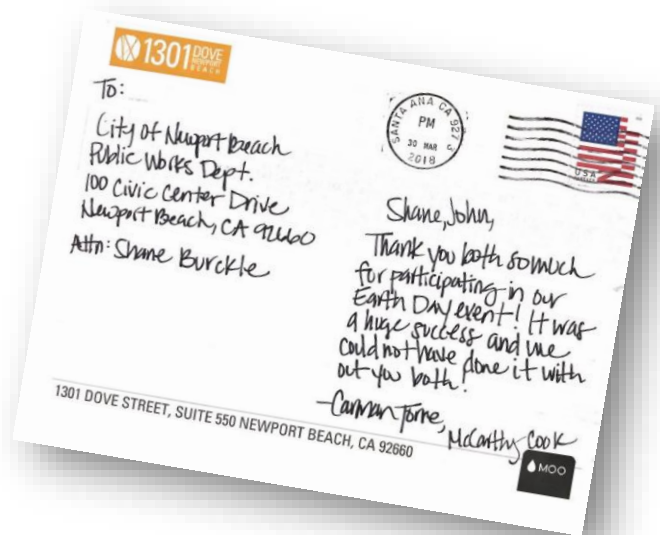 1301 DOVE
NEWPORT
BEACH
To:
City of Newport Beach
Public Works Dept.
100 Civic Center Drive
Newport Beach, CA 92660
Attn: Shane Burckle
SANTA ANA CA 927
PM
30 MAR
2018
USA
Shane, John,
Thank you both so much
for participating in our
Earth Day event! It was
a huge success and we
could not have done it with
out you both!
-Carman Torre,
McCarthy Cook
1301 DOVE STREET, SUITE 550 NEWPORT BEACH, CA 92660
MOO